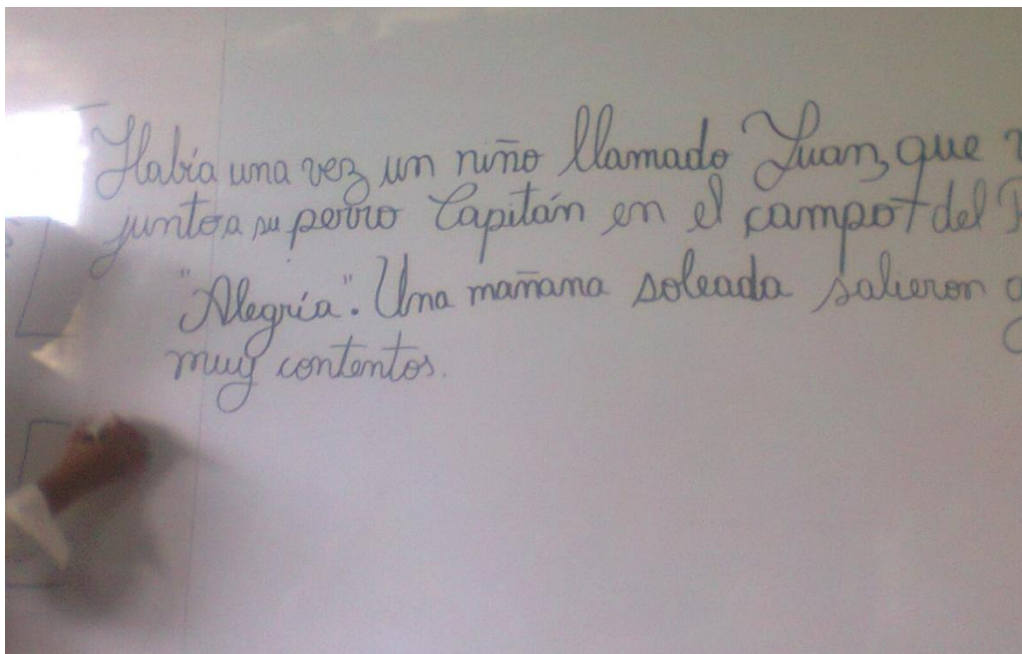 Había una vez un niño llamado Juan, que
junto a su perro Capitán en el campo del
"Alegría". Una mañana soleada salieron
muy contentos.